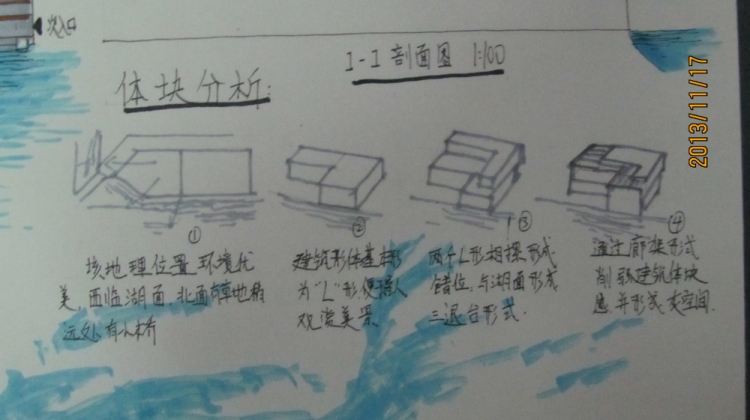 次入口
1-1 剖面图 1:100
体块分析:
2013/11/17
①
该地理位置环境优
美,西临湖面,北面有草地稍
远处有小桥
②
建筑形体基本形
为"L"形,便于人
观赏美景
③
两个L形相搭形成
错位,与湖面形成
三退台形式.
④
通过廊架形式
削弱建筑体块
感,并形成灰空间.